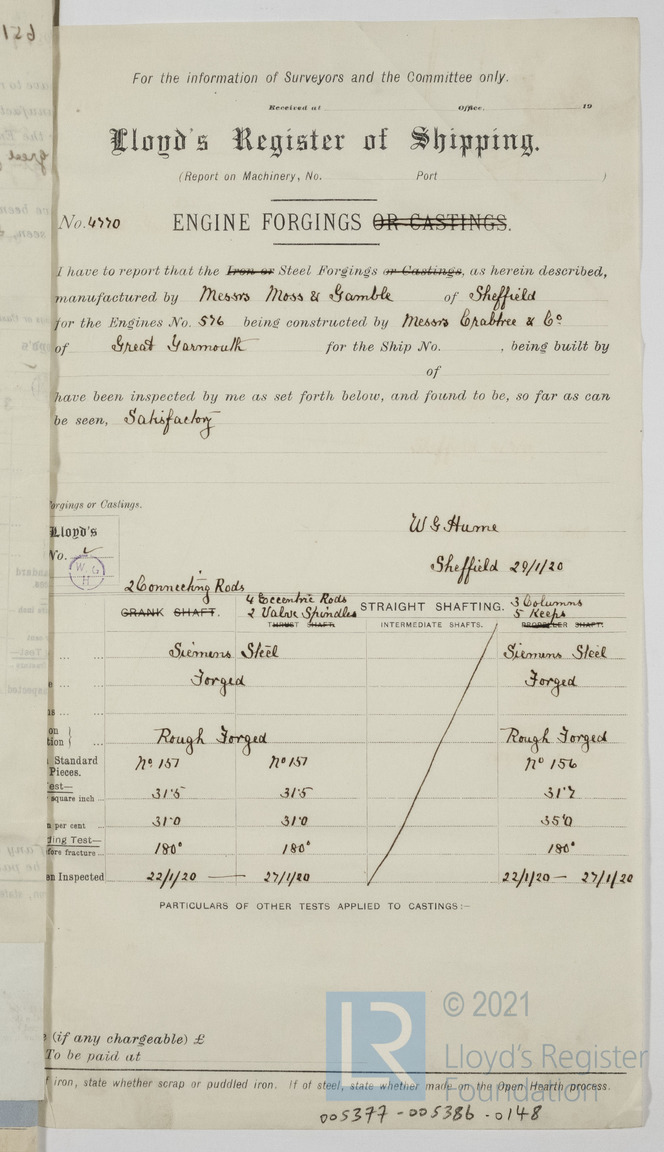 For the information of Surveyors and the Committee only.
Received at Office, 19
Lloyd's Register of Shipping.
(Report on Machinery, No. Port )
No. 4770 ENGINE FORGINGS OR CASTINGS.
I have to report that the Iron or Steel Forgings or Castings, as herein described,
manufactured by Messrs Moss & Gamble of Sheffield
for the Engines No. 576 being constructed by Messrs Crabtree & Co
of Great Yarmouth for the Ship No. , being built by
of
have been inspected by me as set forth below, and found to be, so far as can
be seen, Satisfactory
orgings or Castings.
Lloyd's
No.
W G
H
W G Hume
Sheffield 29/1/20
2 Connecting Rods
CRANK SHAFT.
4 Eccentric Rods
2 Valve Spindles
THRUST SHAFT.
STRAIGHT SHAFTING.
INTERMEDIATE SHAFTS.
3 Columns
5 Keeps
PROPELLER SHAFT.
Siemens Steel Siemens Steel
Forged Forged
on }
tion } Rough Forged Rough Forged
Standard
Pieces. No 157 No 157 No 156
est—
square inch 31.5 31.5 31.7
per cent 31.0 31.0 35.0
ding Test—
fore fracture 180° 180° 180°
en Inspected 22/1/20 — 27/1/20 22/1/20 — 27/1/20
PARTICULARS OF OTHER TESTS APPLIED TO CASTINGS:—
(if any chargeable) £
To be paid at
f iron, state whether scrap or puddled iron. If of steel, state whether made on the Open Hearth process.
005377-005386-0148
LR
© 2021
Lloyd's Register
Foundation